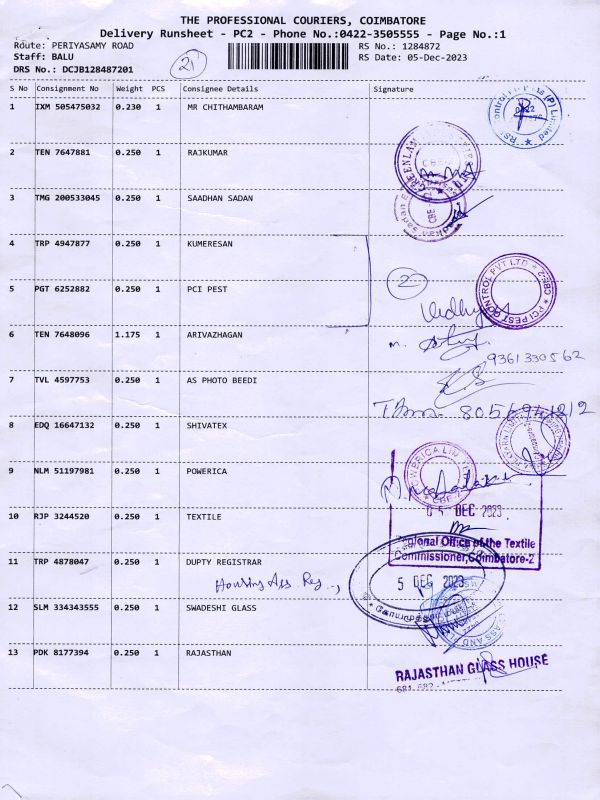 THE PROFESSIONAL COURIERS, COIMBATORE
Delivery Runsheet - PC2 - Phone No.:0422-3505555 - Page No.:1
Route: PERIYASAMY ROAD RS No.: 1284872
Staff: BALU RS Date: 05-Dec-2023
DRS No.: DCJB128487201
21
S No Consignment No Weight PCS Consignee Details Signature
1 IXM 505475032 0.230 1 MR CHITHAMBARAM
2 TEN 7647881 0.250 1 RAJKUMAR
3 TMG 200533045 0.250 1 SAADHAN SADAN
CBE
4 TRP 4947877 0.250 1 KUMERESAN
5 PGT 6252882 0.250 1 PCI PEST
2
PCI PEST CONTROL PVT LTD CBE-2
6 TEN 7648096 1.175 1 ARIVAZHAGAN
9361330562
7 TVL 4597753 0.250 1 AS PHOTO BEEDI
8 EDQ 16647132 0.250 1 SHIVATEX
9 NLM 51197981 0.250 1 POWERICA
DEC 2023
10 RJP 3244520 0.250 1 TEXTILE
Regional Office of the Textile
Commissioner, Coimbatore-2
11 TRP 4878047 1 0.250 1 DUPTY REGISTRAR
5 DEC 2023
12 SLM 334343555 0.250 1 SWADESHI GLASS
13 PDK 8177394 0.250 1 RAJASTHAN
RAJASTHAN GLASS HOUSE